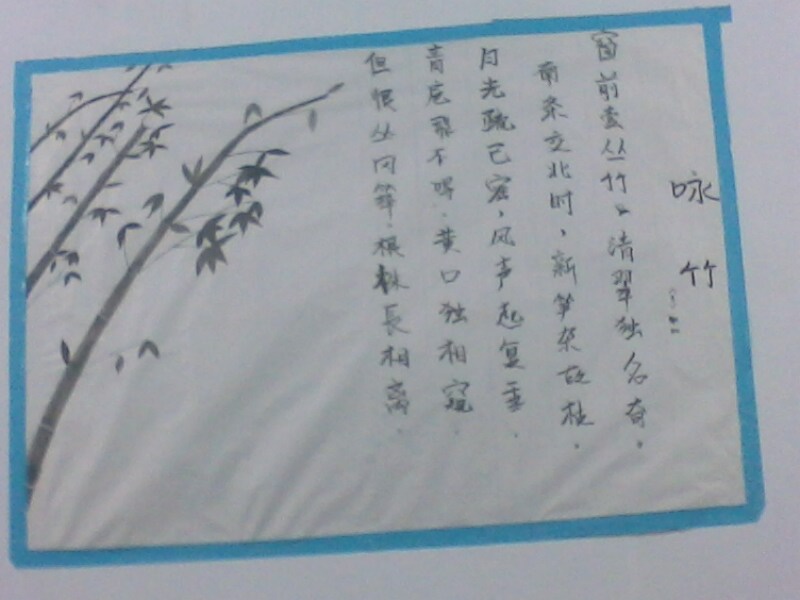 咏竹
窗前壹丛竹，清翠独名奇。
南条交北叶，新笋杂故枝。
月光疏已密，风声起复垂.
青扈飛不碍.黄口独相窥.
但恨丛风箨.根株長相离.